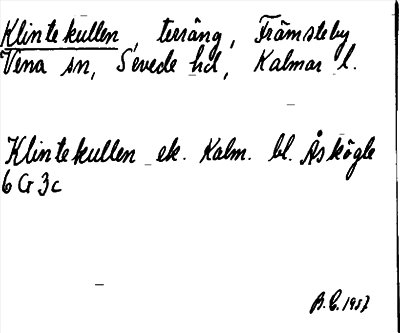 Klintekullen, terräng, Främsteby
Vena sn, Sevede hd, Kalmar l.
Klintekullen ek. Kalm. bl. Åskögle
6 G 3c
B.C. 1957